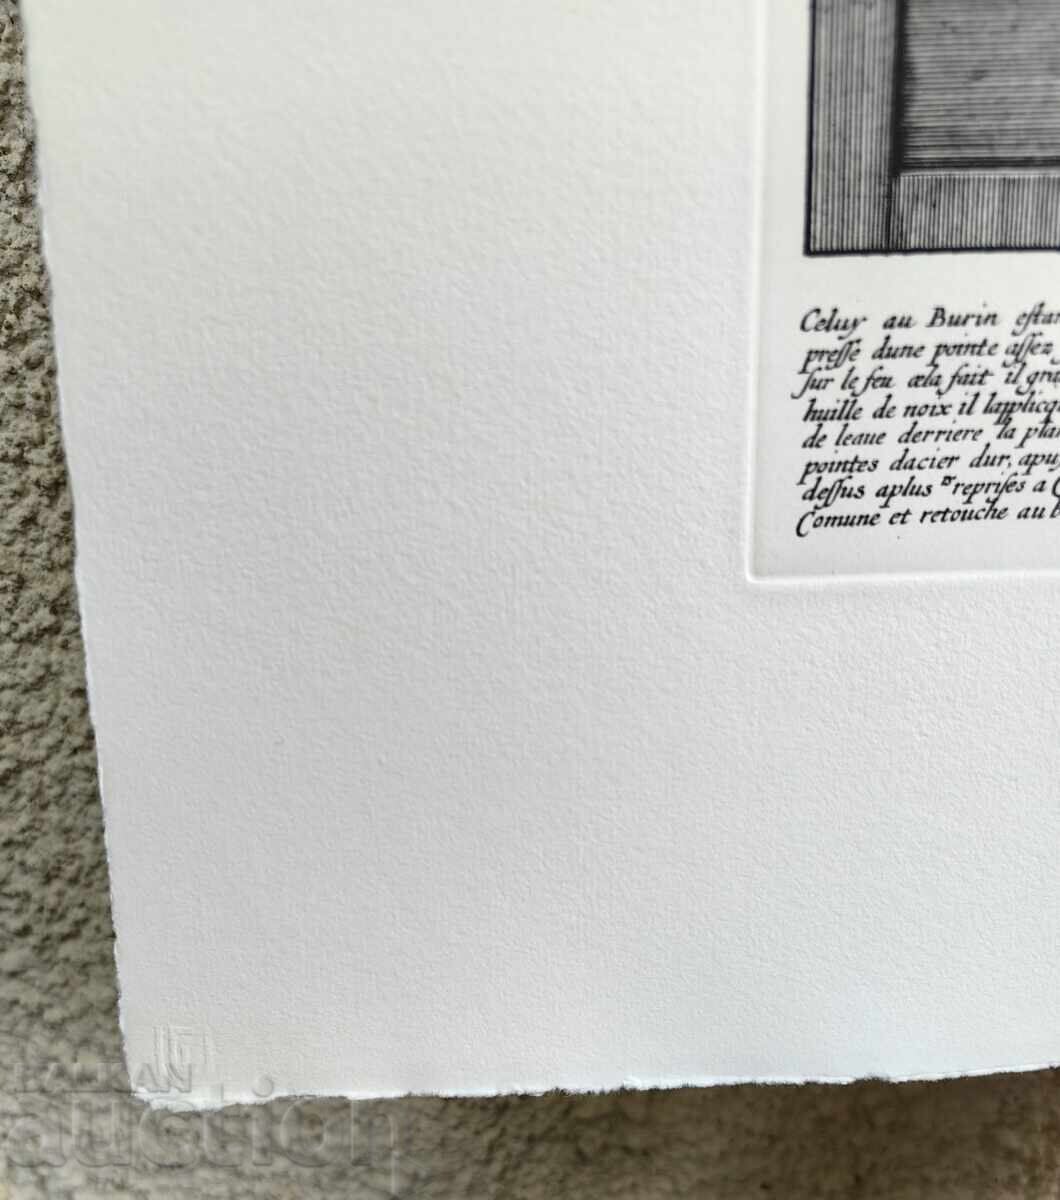 Celuy au Burin estan
presse dune pointe assez
sur le feu cela fait il gra
huille de noix il lapplicq
de leaue derriere la plan
pointes dacier dur, apu
dessus aplus reprises a
Comune et retouche au b
BALKAN
auction